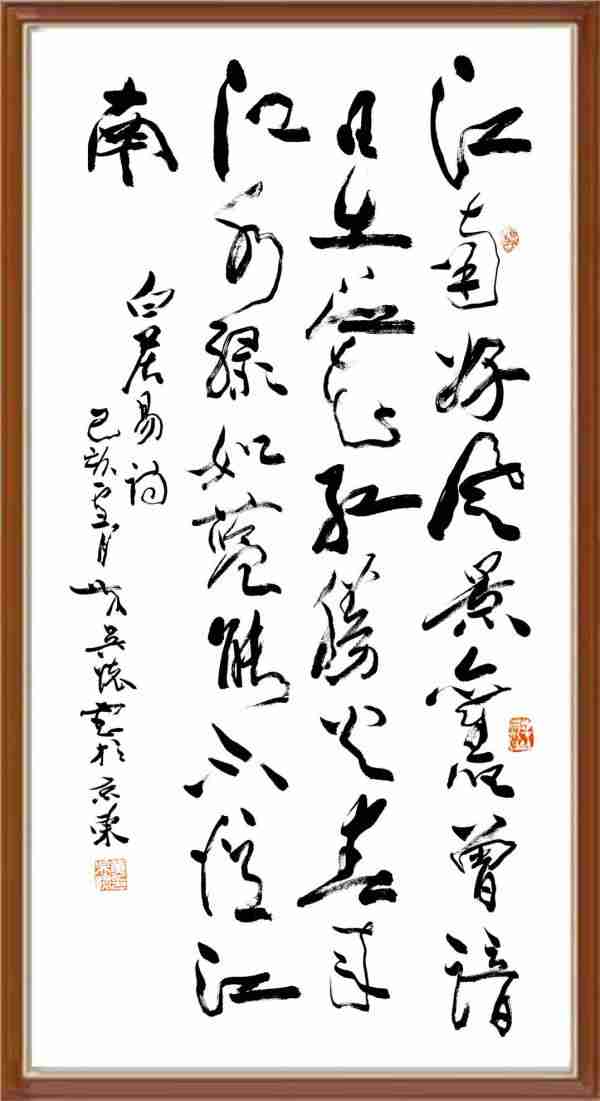 江南好风景旧曾谙
日出江花红胜火春来
江水绿如蓝能不忆江
南
白居易诗
己亥
吴怀 于京東